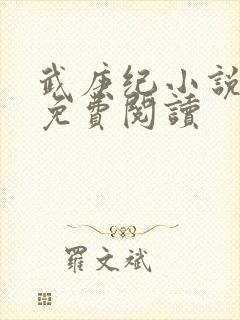 武庚纪小説
免費閱讀
羅文斌